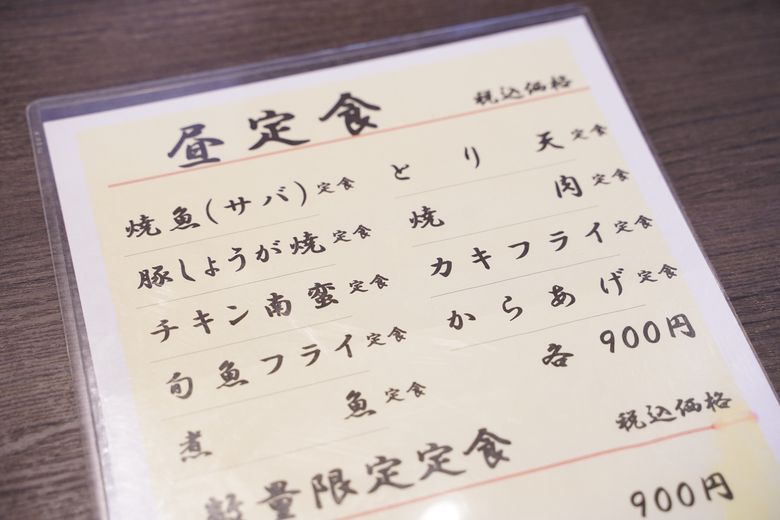 昼定食 税込価格
焼魚(サバ)定食
豚しょうが焼定食
チキン南蛮定食
旬魚フライ定食
煮魚定食
とり天定食
焼肉定食
カキフライ定食
からあげ定食
各900円
数量限定定食 税込価格
900円